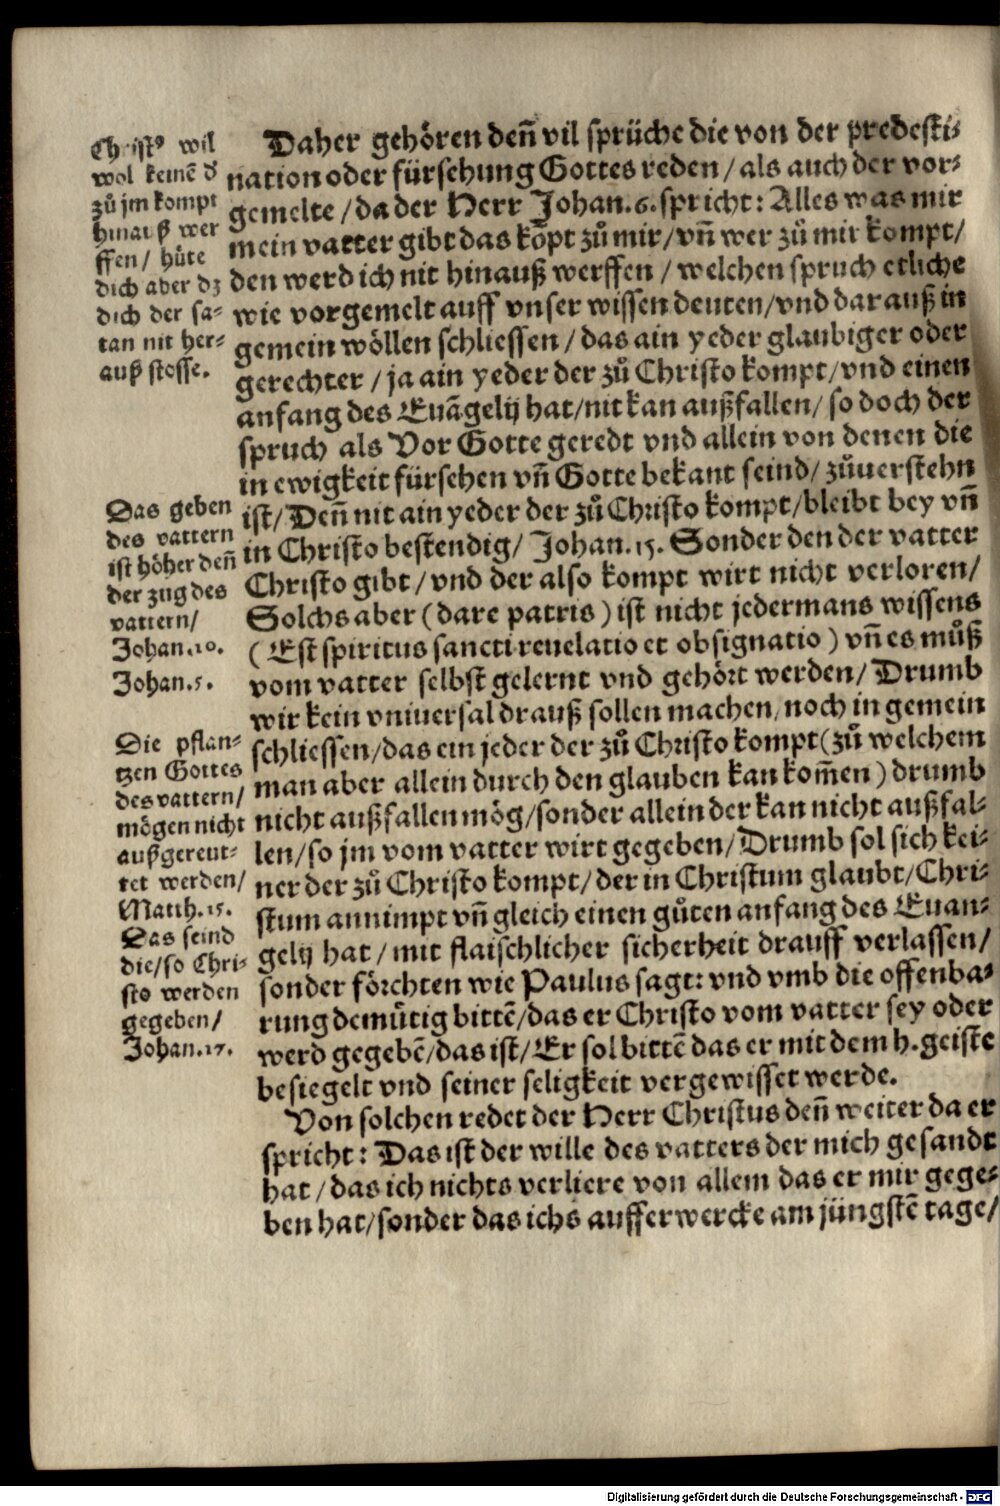 Christ⁹ wil
wol keinē d̕
zů jm kompt
hinauß wer
ffen / hüte
dich aber dz
dich der sa⸗
tan nit her⸗
auß stosse.
Das geben
des vattern
ist höher deñ
der zug des
vattern/
Johan.10.
Johan.5.
Die pflan⸗
tzen Gottes
des vattern/
mögen nicht
außgereut⸗
tet werden/
Matth.15.
Das seind
die/so Chri⸗
sto werden
gegeben/
Johan.17.
Daher gehören deñ vil sprüche die von der predesti⸗
nation oder fürsehung Gottes reden / als auch der vor⸗
gemelte / da der Herr Johan.6.spricht: Alles was mir
mein vatter gibt das kōpt zů mir/vñ wer zů mir kompt/
den werd ich nit hinauß werffen / welchen spruch etliche
wie vorgemelt auff vnser wissen deuten/vnd darauß in
gemein wöllen schliessen / das ain yeder glaubiger oder
gerechter / ja ain yeder der zů Christo kompt/vnd einen
anfang des Euāgelij hat/nit kan außfallen/ so doch der
spruch als Vor Gotte geredt vnd allein von denen die
in ewigkeit fürsehen vñ Gotte bekant seind/ zůuerstehn
ist/Deñ nit ain yeder der zů Christo kompt/bleibt bey vñ
in Christo bestendig/ Johan.15. Sonder den der vatter
Christo gibt/vnd der also kompt wirt nicht verloren/
Solchs aber (dare patris) ist nicht jedermans wissens
(Est spiritus sancti reuelatio et obsignatio) vñ es můß
vom vatter selbst gelernt vnd gehört werden/Drumb
wir kein vniuersal drauß sollen machen/noch in gemein
schliessen/das ein jeder der zů Christo kompt(zů welchem
man aber allein durch den glauben kan kom̄en) drumb
nicht außfallen mög/sonder allein der kan nicht außfal⸗
len/so jm vom vatter wirt gegeben/Drumb sol sich kei⸗
ner der zů Christo kompt/der in Christum glaubt/Chri⸗
stum annimpt vñ gleich einen gůten anfang des Euan⸗
gelij hat/mit flaischlicher sicherheit drauff verlassen/
sonder förchten wie Paulus sagt: vnd vmb die offenba⸗
rung demůtig bittē/das er Christo vom vatter sey oder
werd gegebē/das ist/Er sol bittē das er mit dem h.geiste
besiegelt vnd seiner seligkeit vergewisset werde.
Von solchen redet der Herr Christus deñ weiter da er
spricht: Das ist der wille des vatters der mich gesandt
hat / das ich nichts verliere von allem das er mir gege⸗
ben hat/sonder das ichs aufferwercke am jüngstē tage/
Digitalisierung gefördert durch die Deutsche Forschungsgemeinschaft - DFG